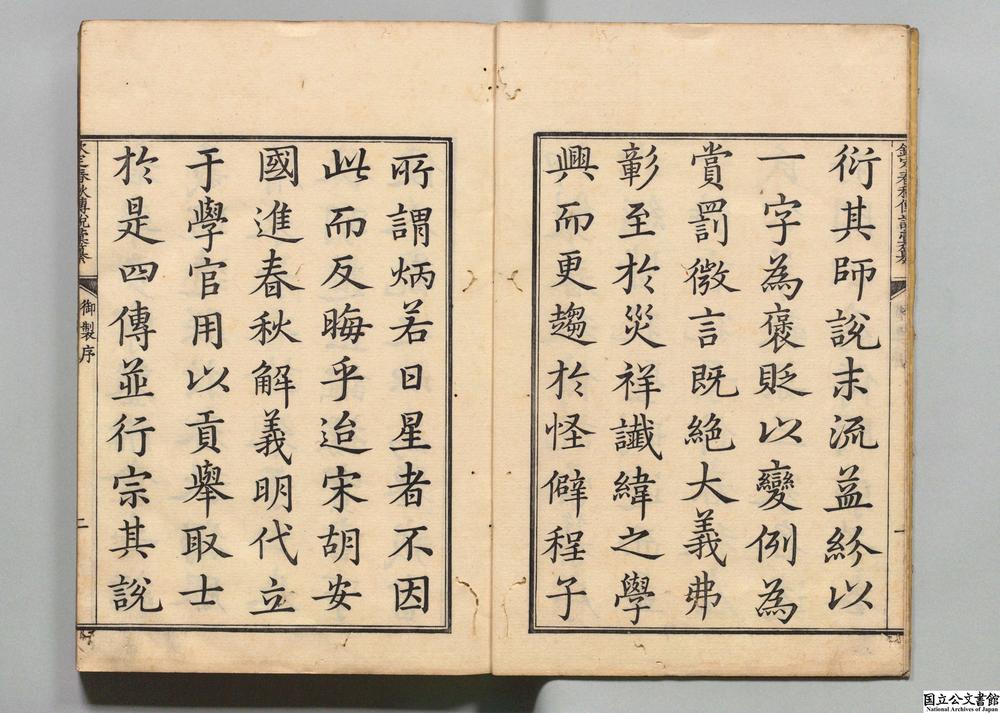 衍其師說末流益紛以
一字為褒貶以變例為
賞罰微言既絕大義弗
彰至於災祥讖緯之學
興而更趨於怪僻程子
所謂炳若日星者不因
此而反晦乎迨宋胡安
國進春秋解義明代立
于學官用以貢舉取士
於是四傳並行宗其說
御製序
二
国立公文書館
National Archives of Japan